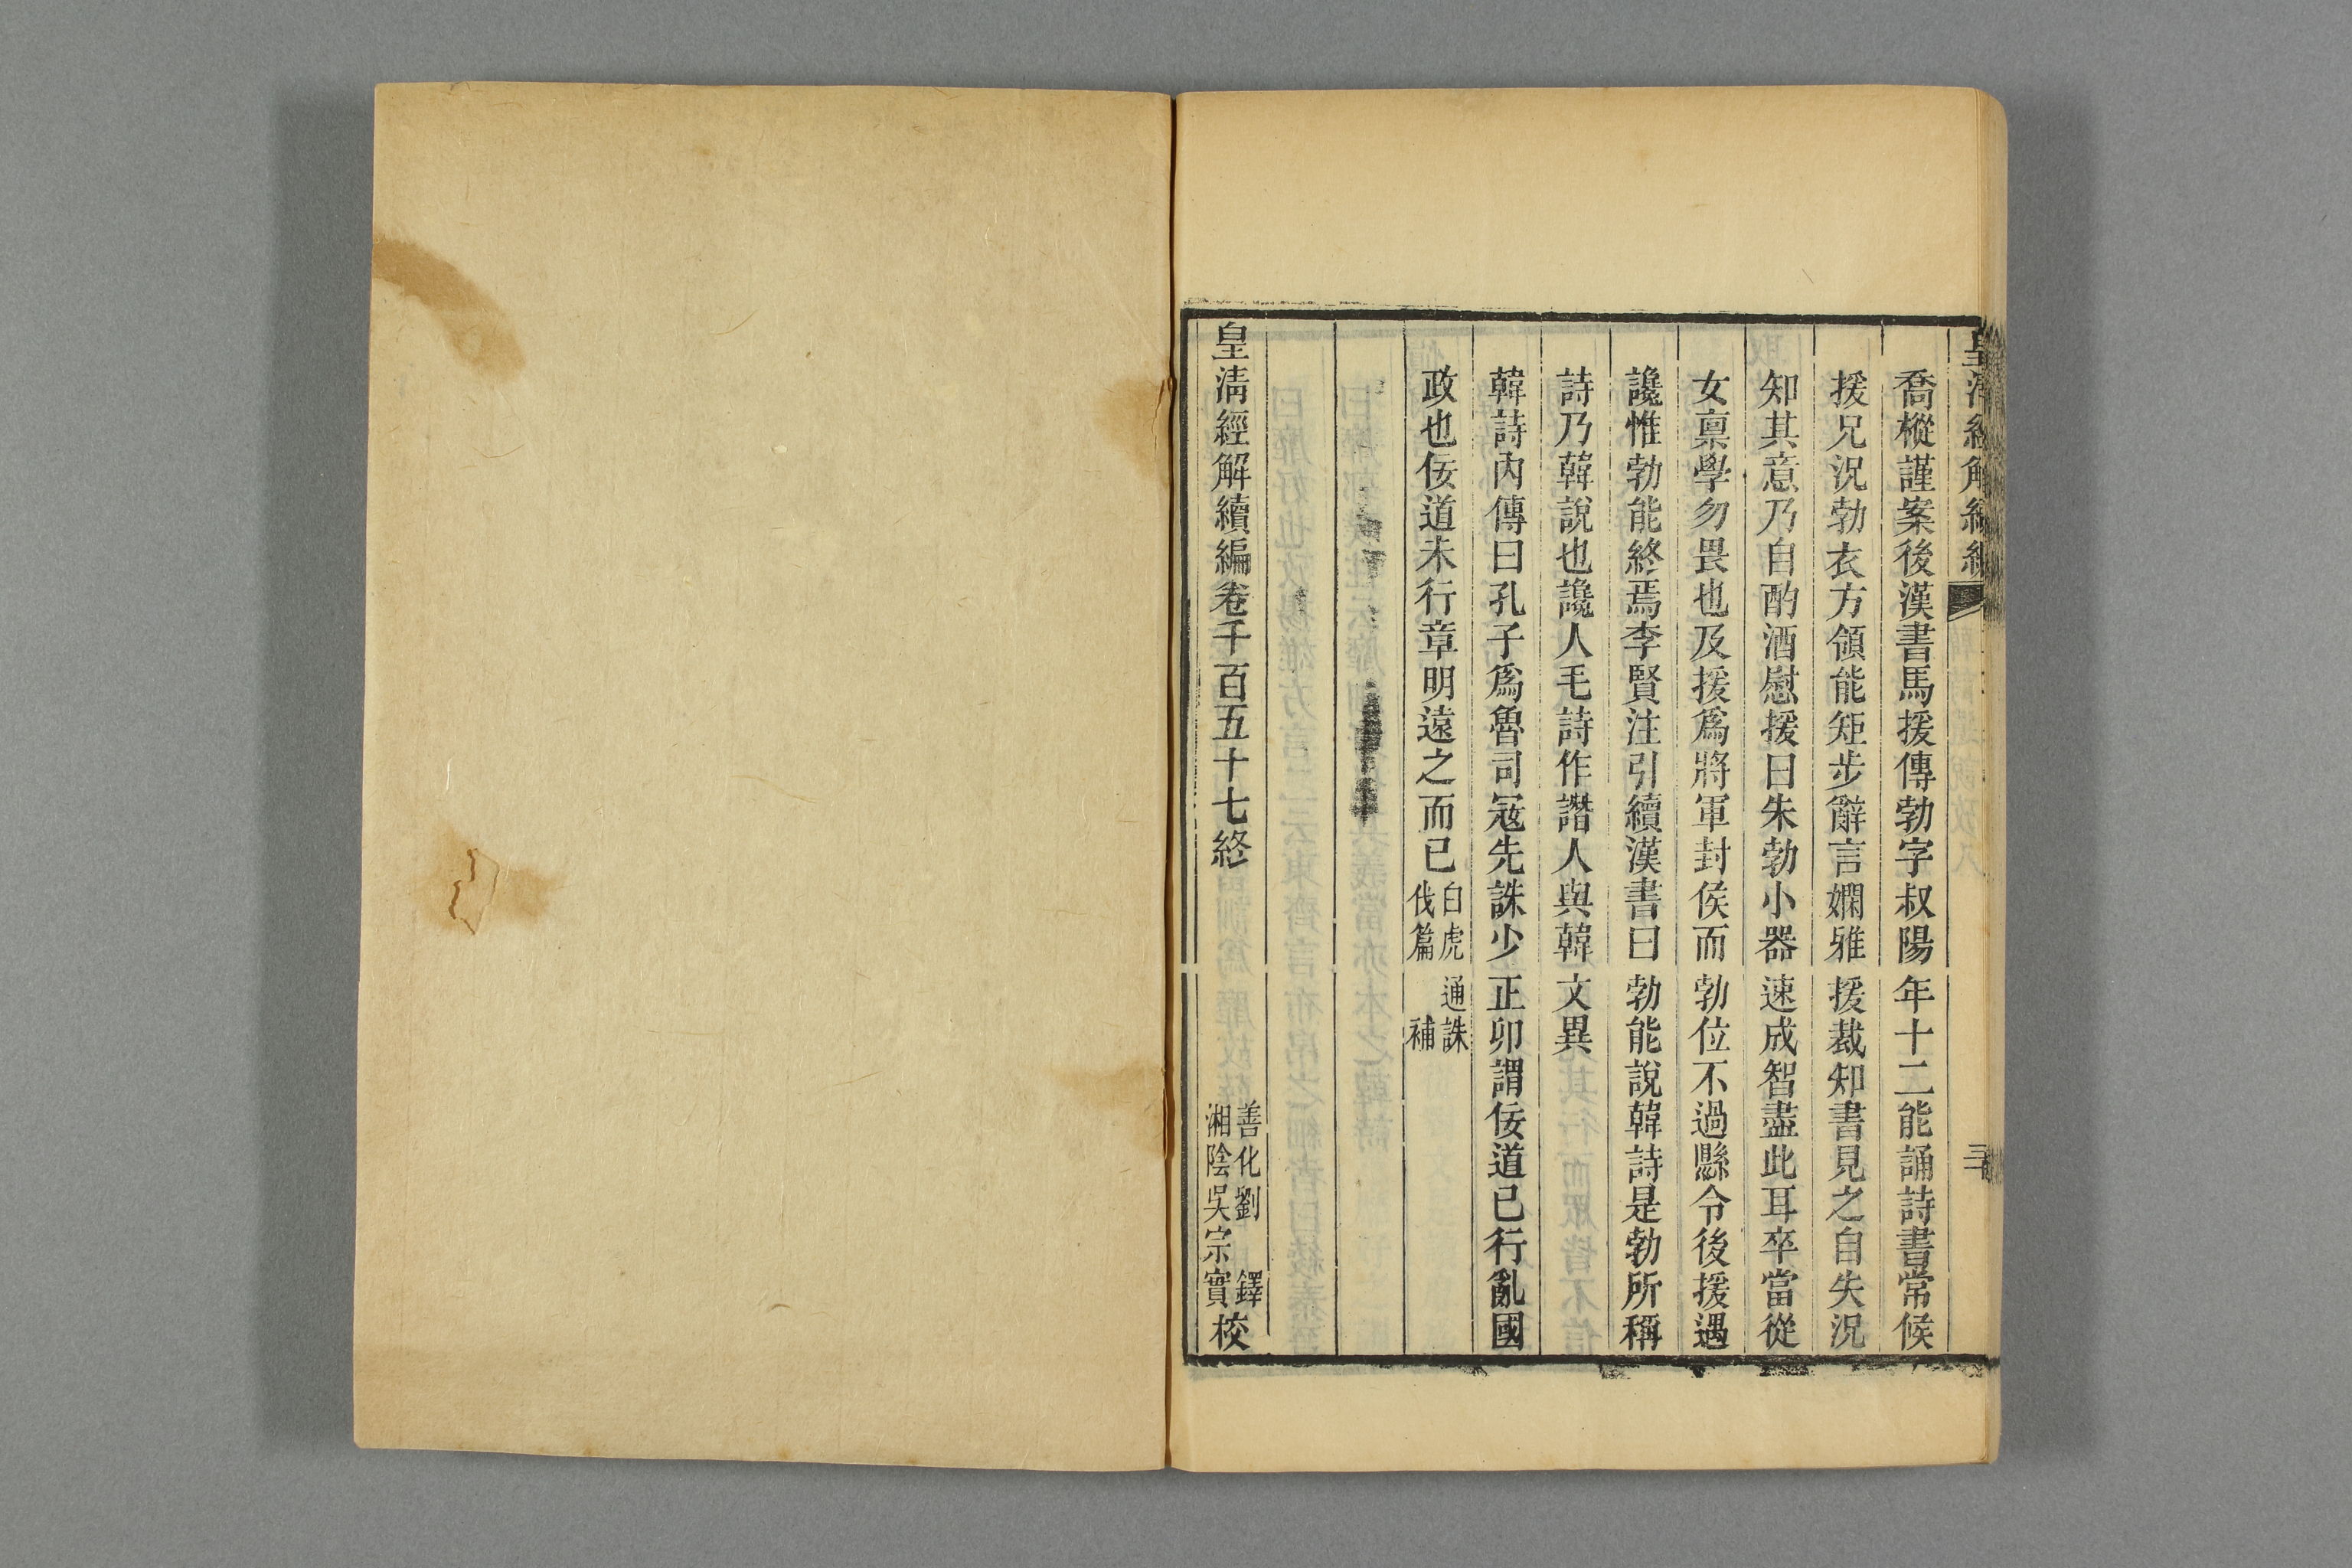 皇清經解續編
三十
喬樅謹案後漢書馬援傳勃字叔陽年十二能誦詩書常候
援兄況勃衣方領能矩步辭言嫻雅援裁知書見之自失況
知其意乃自酌酒慰援曰朱勃小器速成智盡此耳卒當從
女稟學勿畏也及援爲將軍封侯而勃位不過縣令後援遇
讒惟勃能終焉李賢注引續漢書曰勃能說韓詩是勃所稱
詩乃韓說也讒人毛詩作譖人與韓文異
韓詩內傳曰孔子爲魯司寇先誅少正卯謂佞道已行亂國
政也佞道未行章明遠之而已白虎通誅伐篇補
皇清經解續編卷千百五十七終
善化劉鐸
湘陰吳宗實校